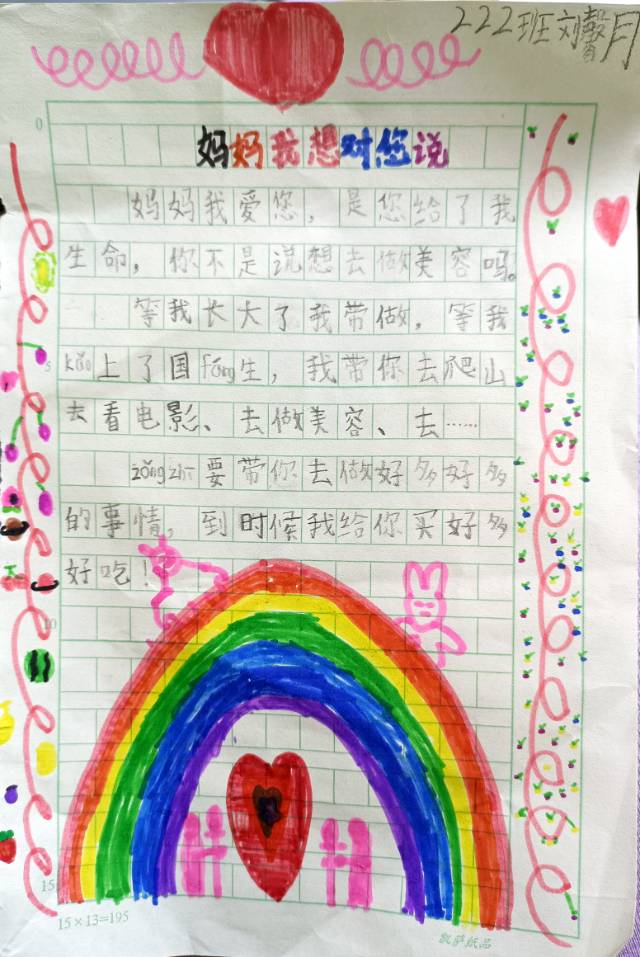 222班刘馨月
0
妈妈我想对您说
妈妈我爱您，是您给了我
生命，你不是说想去做美容吗。
等我长大了我带做，等我
5
kǎo上了国fáng生，我带你去爬山
去看电影、去做美容、去……
zǒng zhī要带你去做好多好多
的事情，到时候我给你买好多
好吃！
10
15
15×13=195
凯萨纸品